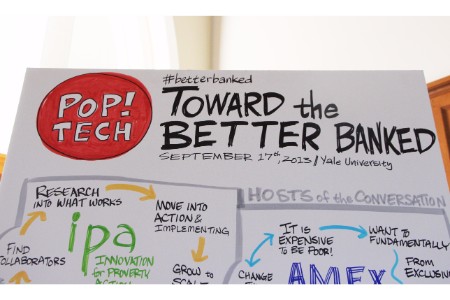 POP!
TECH
#betterbanked
TOWARD the
BETTER BANKED
SEPTEMBER 17th, 2013 / Yale University
RESEARCH
INTO WHAT WORKS
MOVE INTO
ACTION &
IMPLEMENTING
ipa
INNOVATION
for POVERTY
ACTION
FIND
COLLABORATORS
GROW to
SCALE
HOSTS of the CONVERSATION
IT IS
EXPENSIVE
TO BE POOR!
WANT to
FUNDAMENTALLY
CHANGE
AMEX
FROM
EXCLUSIVE